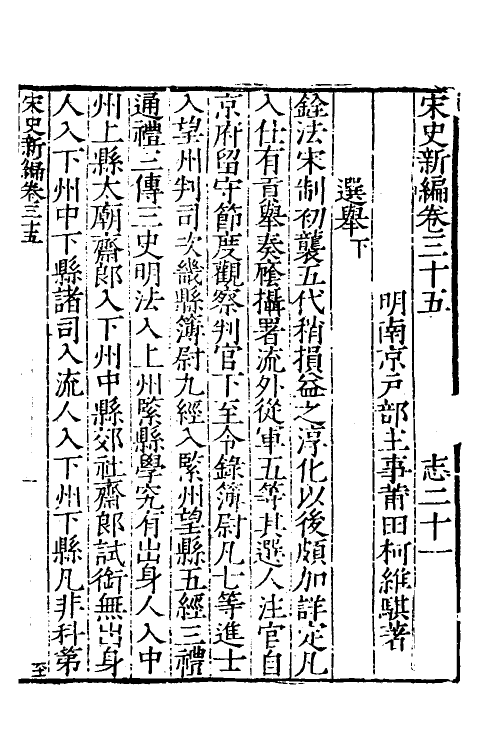 宋史新編卷三十五　志二十一
明南京戸部主事莆田柯維騏著
選舉下
銓法宋制初襲五代稍損益之淳化以後頗加詳定凡
入仕有貢舉奏廕攝署流外從軍五等其選人注官自
京府留守節度觀察判官下至令錄簿尉凡七等進士
入望州判司次畿縣簿尉九經入緊州望縣五經三禮
通禮三傳三史明法入上州緊縣學究有出身人入中
州上縣太廟齋郎入下州中縣郊社齋郎試銜無出身
人入下州中下縣諸司入流人入下州下縣凡非科第
宋史新編卷三十五　一　至